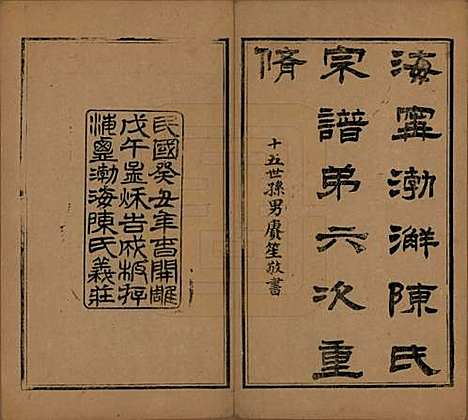 海寧渤海陳氏
宗譜弟六次重
脩
十五世孫男賡笙敬書
民國癸丑年春開雕
戊午孟秋告成板存
浦鹽渤海陳氏義莊